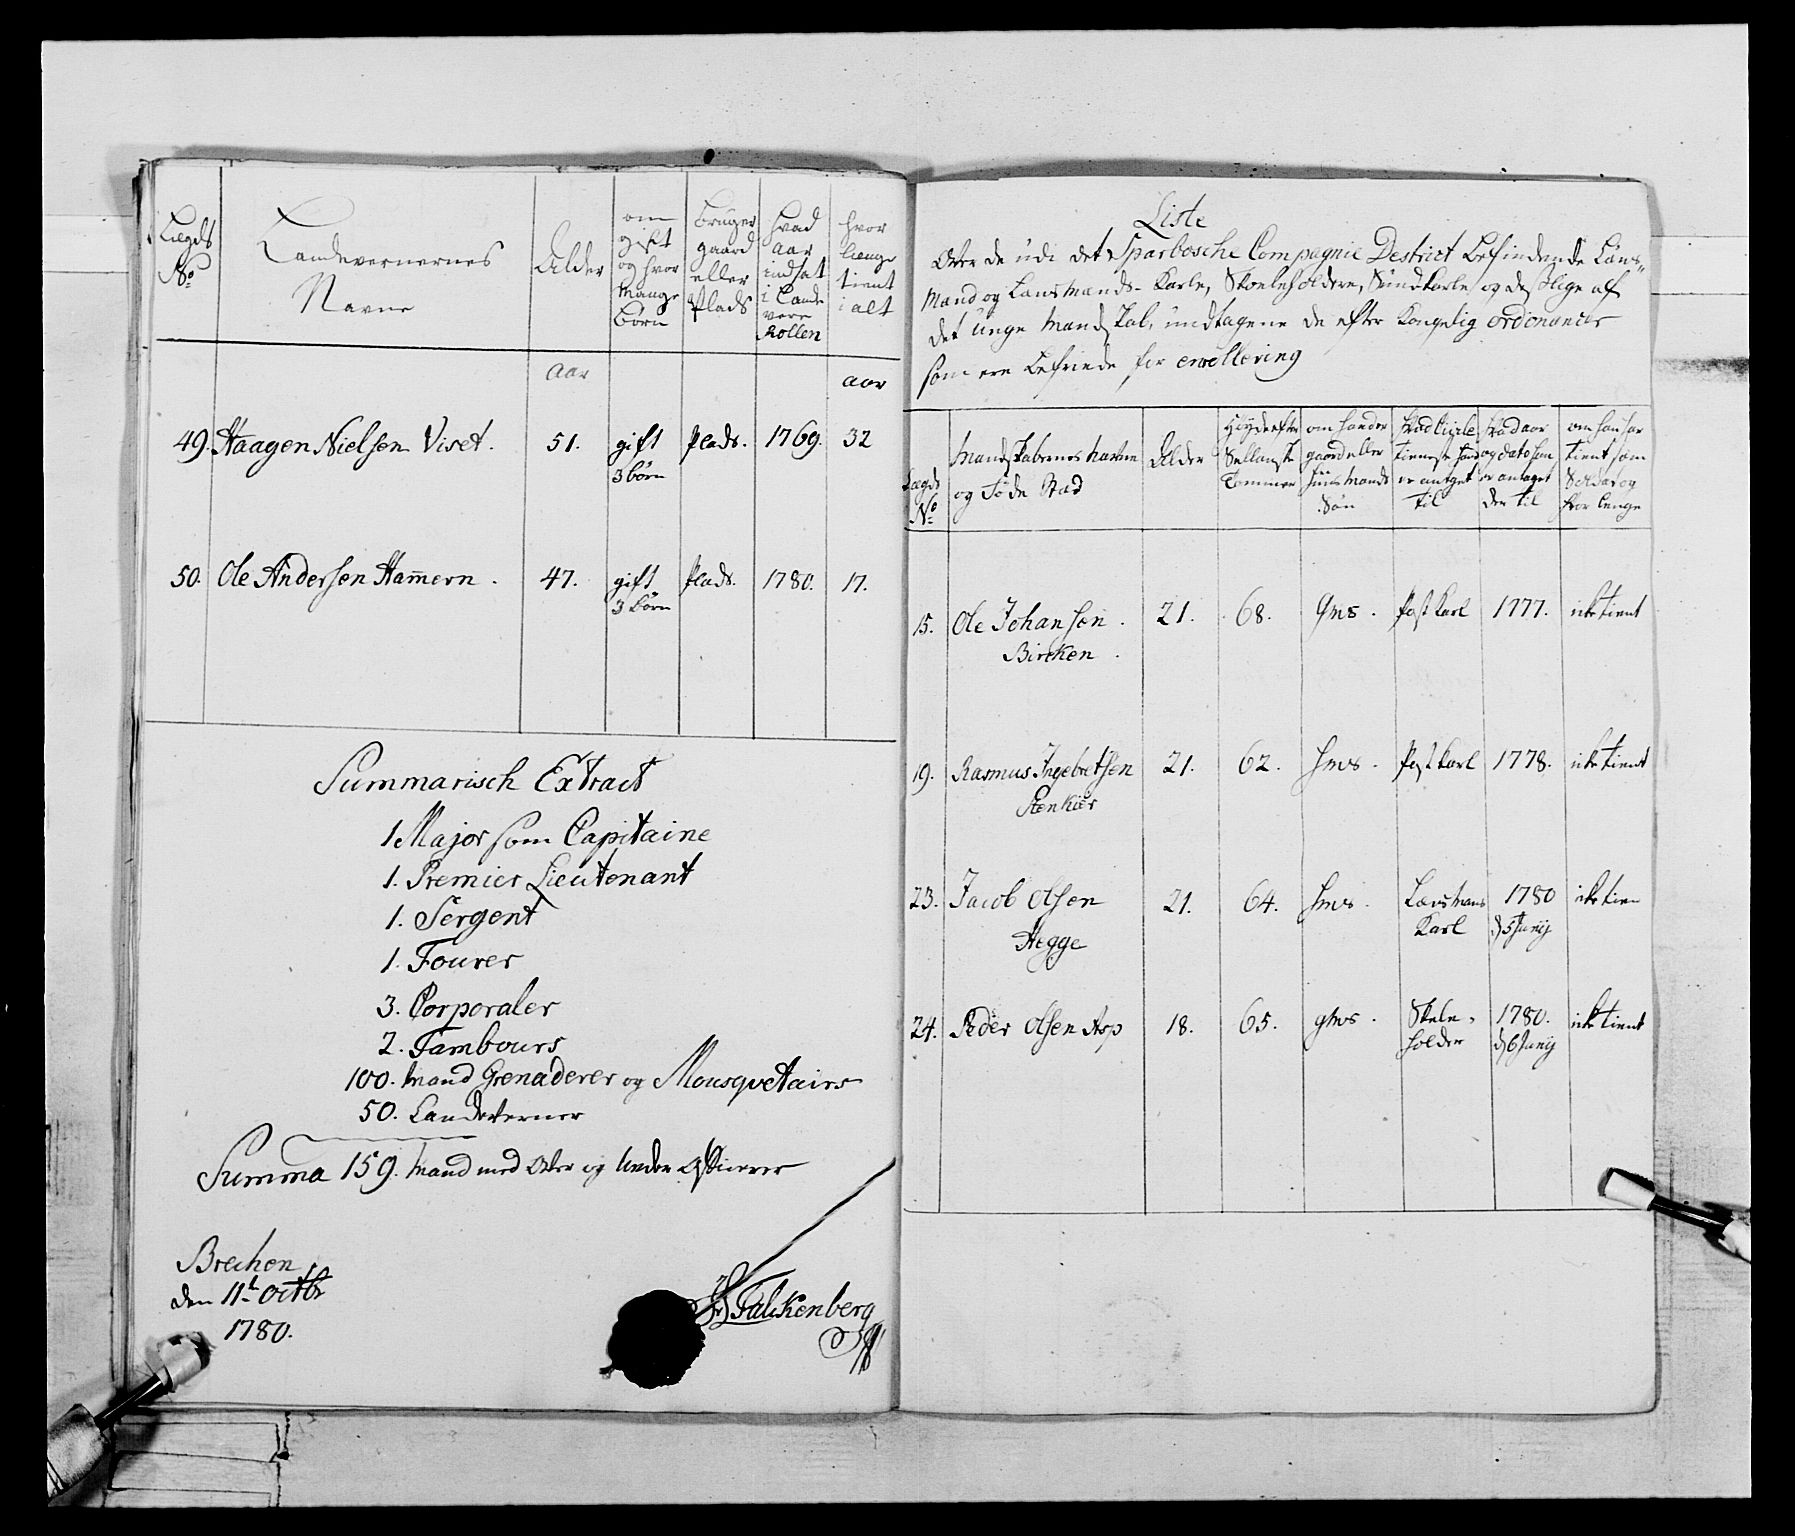 Lægds No
Landeverernes Navne
Alder
om gift og hvor mange børn
bruger gaard eller Plads
hvad aar indsat i Lande vere Rollen
hvor længe tient i alt
aar
aar
49. Haagen Nielsen Viset. 51. gift 3 börn Plads. 1769. 32
50. Ole Andersen Ham̅ern. 47. gift 3 börn Plads. 1780. 17.
Summarisch Extract
1 Major som Capitaine
1. Premier Lieutenant
1. Sergent
1. Fourer
3. Corporaler
2. Tambours
100. Mand Grenaderer og Mousqvetairs
50. Landeverner
Summa 159. Mand med Over og Under Officerer
Brechen
den 11t Octbr
1780.
Falckenberg
Liste
Over de udi det Sparbosche Compagnie Destrict befindende Læns-
mand og Lænsmands-Karle, Skoleholdere, Sundkarle og desslige af
det unge Mandskab, undtagene de efter Kongelig ordonancer
som ere befriede for enrollering
Lægds No
Mandskabernes Navne og Föde Stad
Alder
Höyde efter Sællandske Tommer
om hand er gaard eller huusmands Sön
hvad Civile tieneste hand er antaget til
hvad aar og dato han er antaget der til
om han har tient som Soldat og hvor længe
15. Ole Johansen Bircken. 21. 68. gms. Postkarl 1777. icke tient
19. Rasmus Ingebretsen Stenkier 21. 62. hms. Postkarl 1778. icke tient
23. Jacob Olsen Hegge 21. 64. hms. Lænsmans Karl 1780 d 5 Junij icke tien
24. Peder Olsen Asp 18. 65. gms. Skole-holder 1780. d 6 Junij icke tient